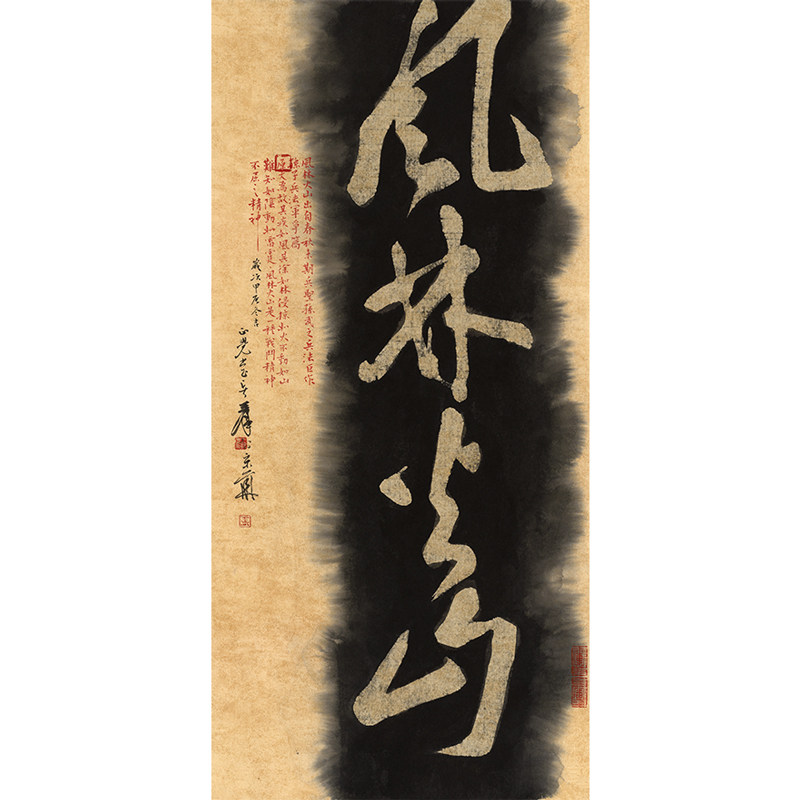 風林火山
風林火山出自春秋末期兵聖孫武之兵法巨作
孫子兵法軍爭篇
原文為故其疾如風其徐如林侵掠如火不動如山
難知如陰動如雷霆風林火山是一種戰鬥精神
不屈之精神
歲次甲辰冬吉